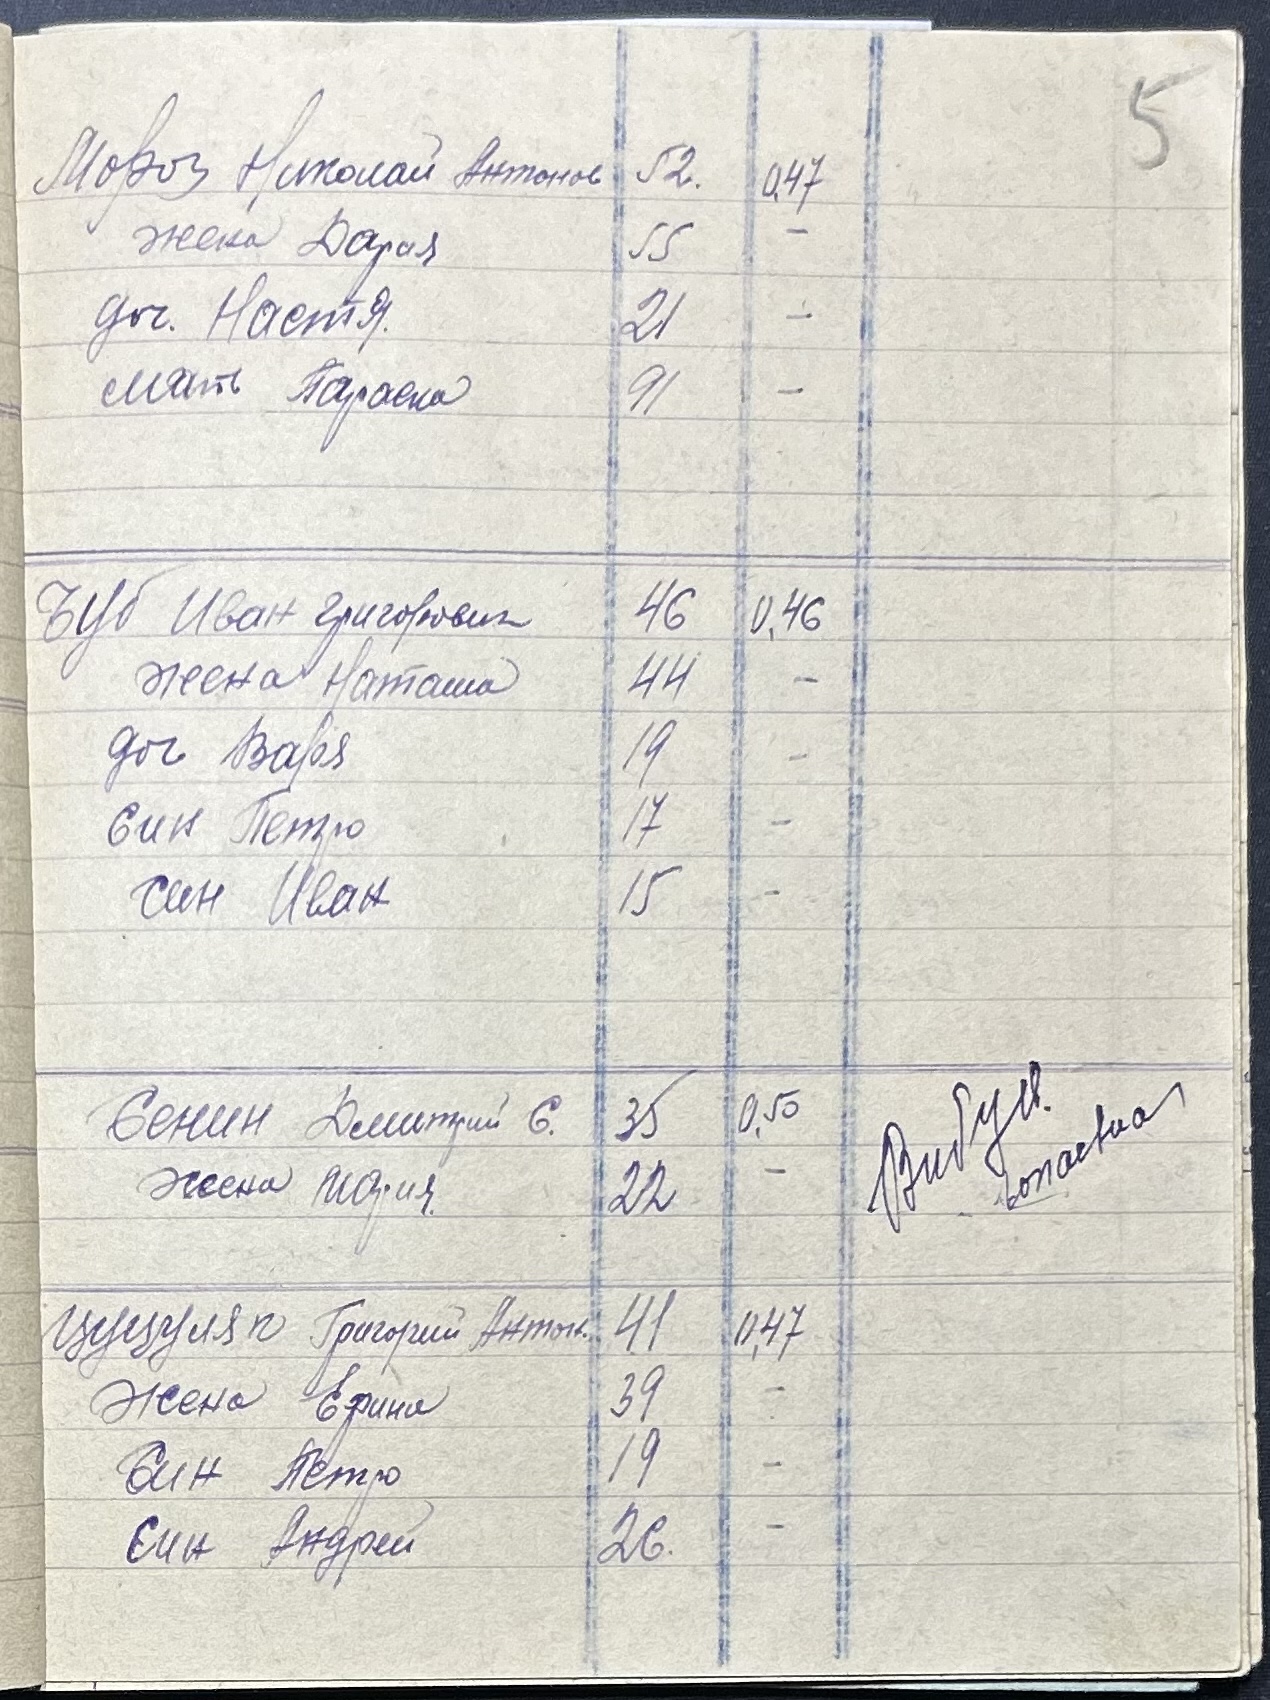 5
Мороз Николай Антонов 52. 0,47
жена Дария 55 -
доч. Настя. 21 -
мать Параска 91 -
Чуб Иван Григорович 46 0,46
жена Наташа 44 -
доч Варя 19 -
син Петро 17 -
син Иван 15 -
Сенин Дмитрий С. 35 0,50 Вибул.
жена Мария. 22 -
Цуцуляк Григорий Антон. 41 0,47
жена Ерина 39 -
син Петро 19 -
син Андрей 26. -